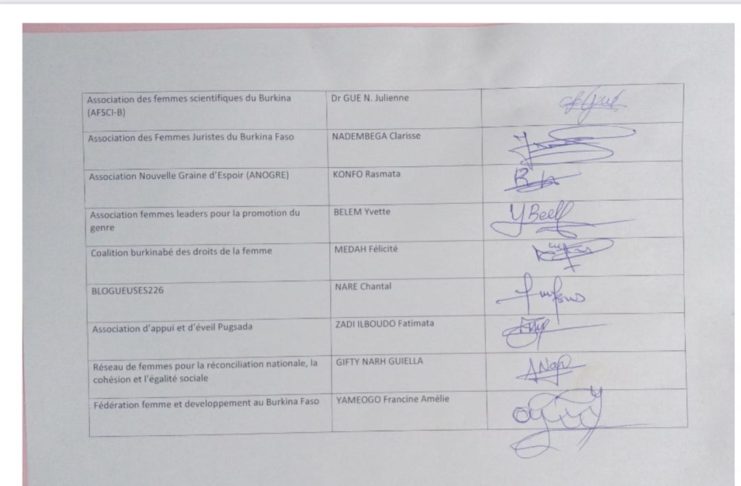 Association des femmes scientifiques du Burkina
(AFSCI-B)
Dr GUE N. Julienne
Association des Femmes Juristes du Burkina Faso
NADEMBEGA Clarisse
Association Nouvelle Graine d'Espoir (ANOGRE)
KONFO Rasmata
Association femmes leaders pour la promotion du
genre
BELEM Yvette
Coalition burkinabé des droits de la femme
MEDAH Félicité
BLOGUEUSES226
NARE Chantal
Association d'appui et d'éveil Pugsada
ZADI ILBOUDO Fatimata
Réseau de femmes pour la réconciliation nationale, la
cohésion et l'égalité sociale
GIFTY NARH GUIELLA
Fédération femme et developpement au Burkina Faso
YAMEOGO Francine Amélie